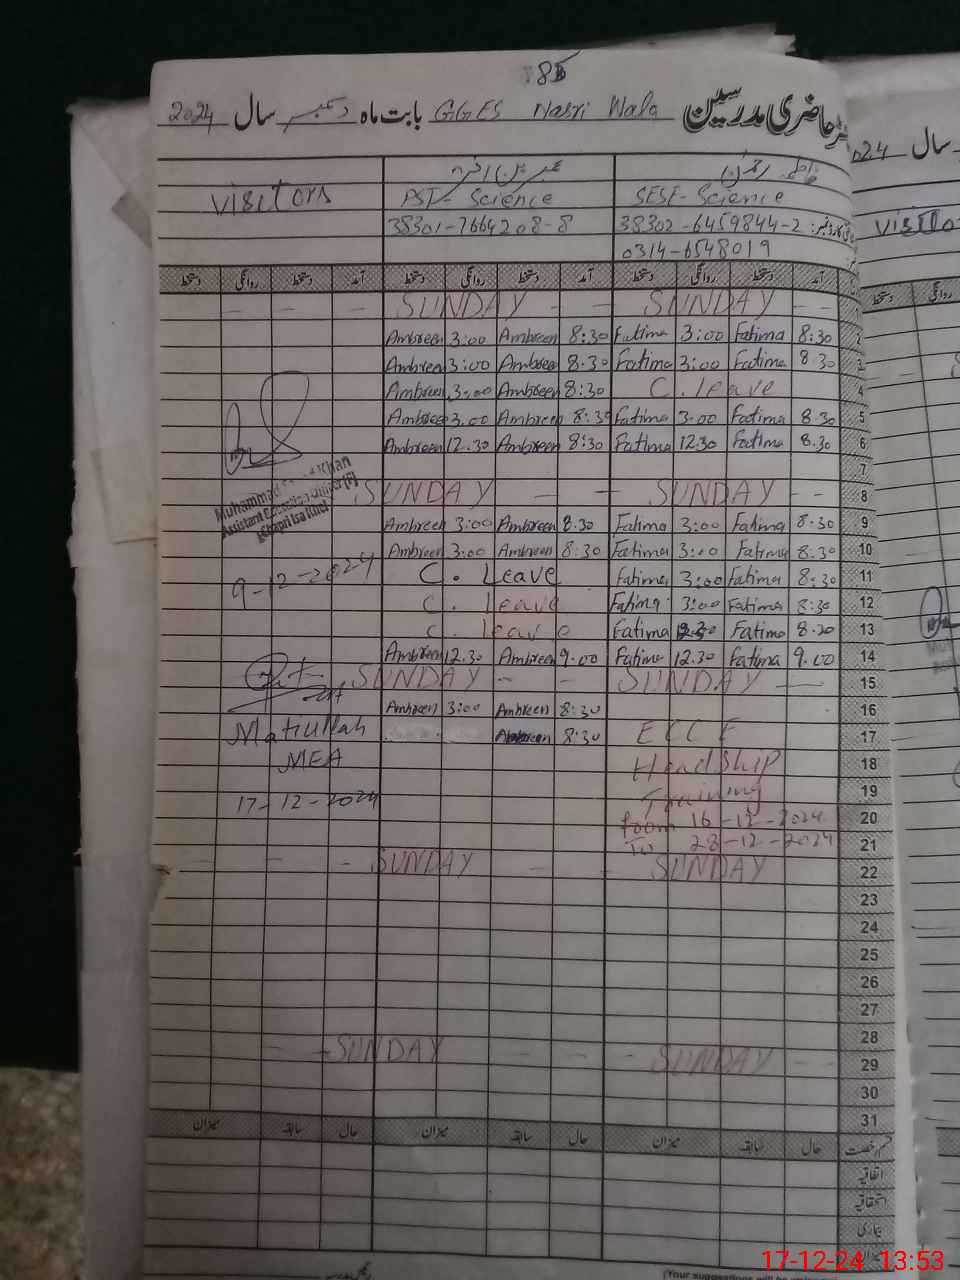 85
حاضری مدرسین GGES Nasri Wala بابت ماہ دسمبر سال 2024
024 سال
Visitors PST- Science SESE- Science
38301-7664208-8 38302-6459844-2
0314-6548019
دستخط روانگی دستخط آمد دستخط روانگی دستخط آمد دستخط روانگی دستخط آمد
SUNDAY SUNDAY 1
Ambreen 3:00 Ambreen 8:30 Fatima 3:00 Fatima 8:30 2
Ambreen 3:00 Ambreen 8.30 Fatima 3:00 Fatima 8.30 3
Ambreen 3:00 Ambreen 8:30 C. leave 4
Ambreen 3.00 Ambreen 8:30 Fatima 3.00 Fatima 8.30 5
Ambreen 12.30 Ambreen 8:30 Fatima 12.30 Fatima 8.30 6
7
SUNDAY SUNDAY 8
Muhammad Khan
Assistant Education Officer (F)
Chapri Isa Khel
Ambreen 3:00 Ambreen 8.30 Fatima 3:00 Fatima 8.30 9
Ambreen 3:00 Ambreen 8:30 Fatima 3:00 Fatima 8:30 10
9-12-2024 C. Leave Fatima 3:00 Fatima 8:30 11
C. leave Fatima 3:00 Fatima 8:30 12
C. leave Fatima Fatima 8.30 13
Ambreen 12.30 Ambreen 9.00 Fatima 12.30 Fatima 9.00 14
SUNDAY SUNDAY 15
Ambreen 3:00 Ambreen 8:30 16
Matiullah Ambreen 8:30 ECCE 17
MEA Headship 18
17-12-2024 Training 19
from 16-12-2024 20
To 28-12-2024 21
SUNDAY SUNDAY 22
23
24
25
26
27
28
SUNDAY SUNDAY 29
30
31
میزان سابقہ حال میزان سابقہ حال میزان سابقہ حال قسم رخصت
اتفاقیہ
استحقاقیہ
بیماری
میزان
17-12-24 13:53
(Your suggestions will be